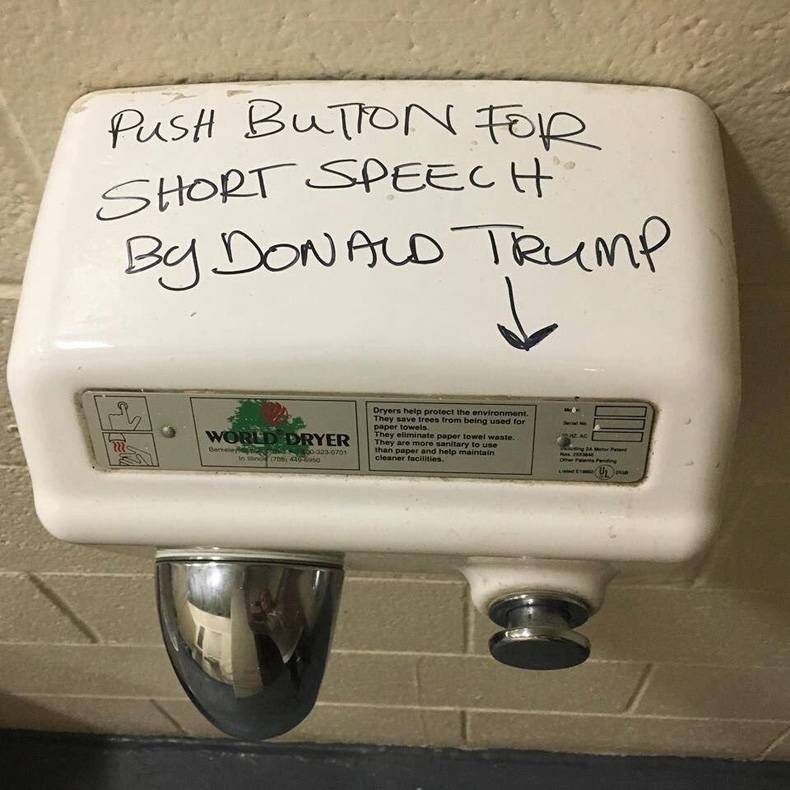 PUSH BUTTON FOR
SHORT SPEECH
By DONALD TRUMP
WORLD DRYER
Dryers help protect the environment.
They save trees from being used for
paper towels.
They eliminate paper towel waste.
They are more sanitary to use
than paper and help maintain
cleaner facilities.
Serial No.
Other Patents Pending
Listed
UL